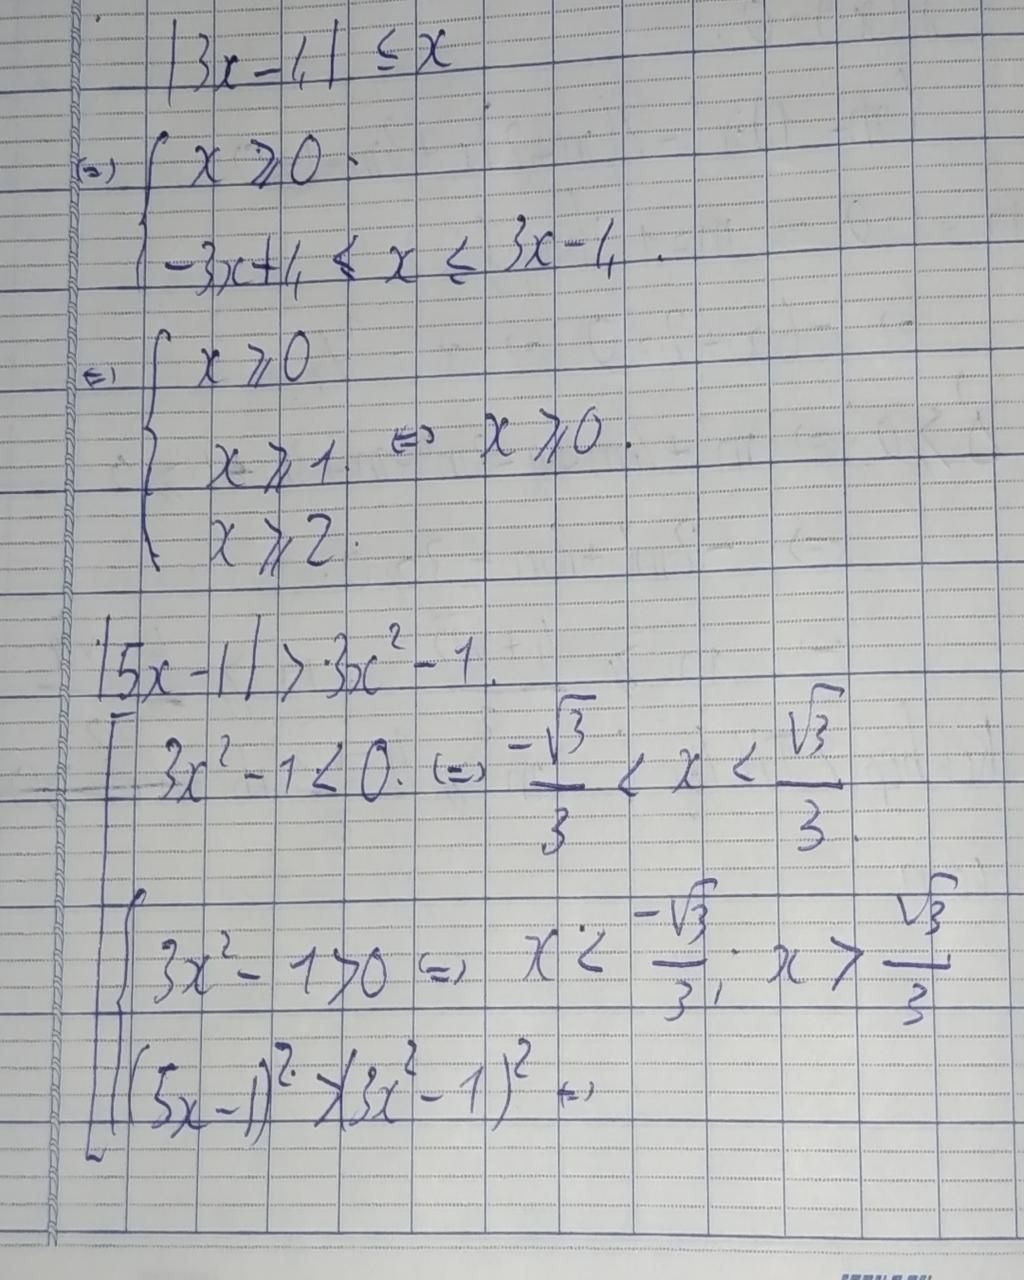 |3x-4| ≤ x
(=) { x ⩾ 0.
-3x+4 ≤ x ≤ 3x-4.
(=) { x ⩾ 0
x ⩾ 1 (=) x ⩾ 0.
x ⩾ 2.
|5x-1| > 3x² - 1.
[ 3x² - 1 < 0. (=) -√3/3 < x < √3/3.
{ 3x² - 1 > 0 (=) x < -√3/3; x > √3/3
(5x-1)² > (3x² - 1)² (=)